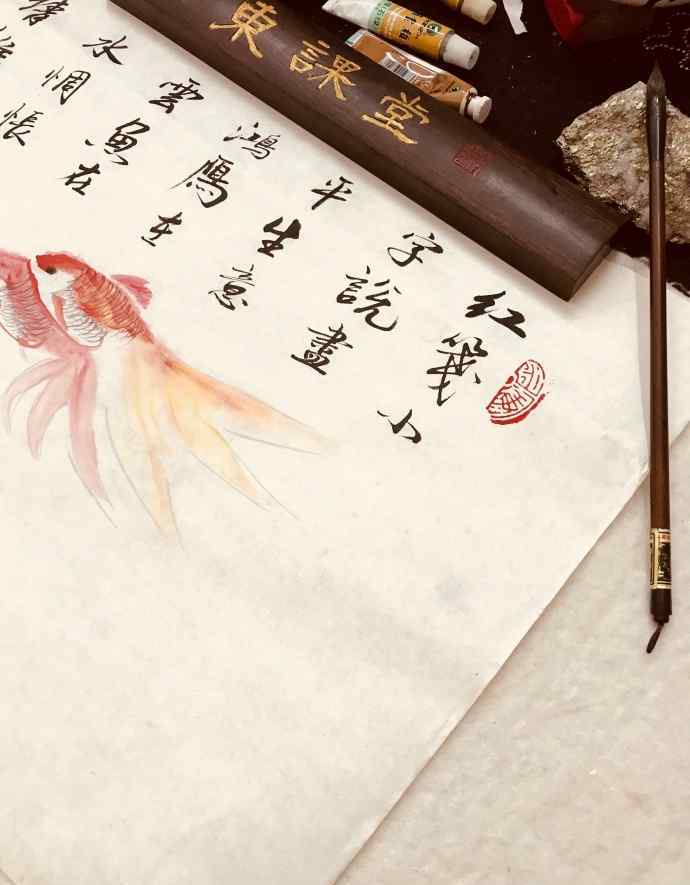 東課堂
红箋小
字說盡
平生意
鴻鴈在
雲魚在
水惆悵
情